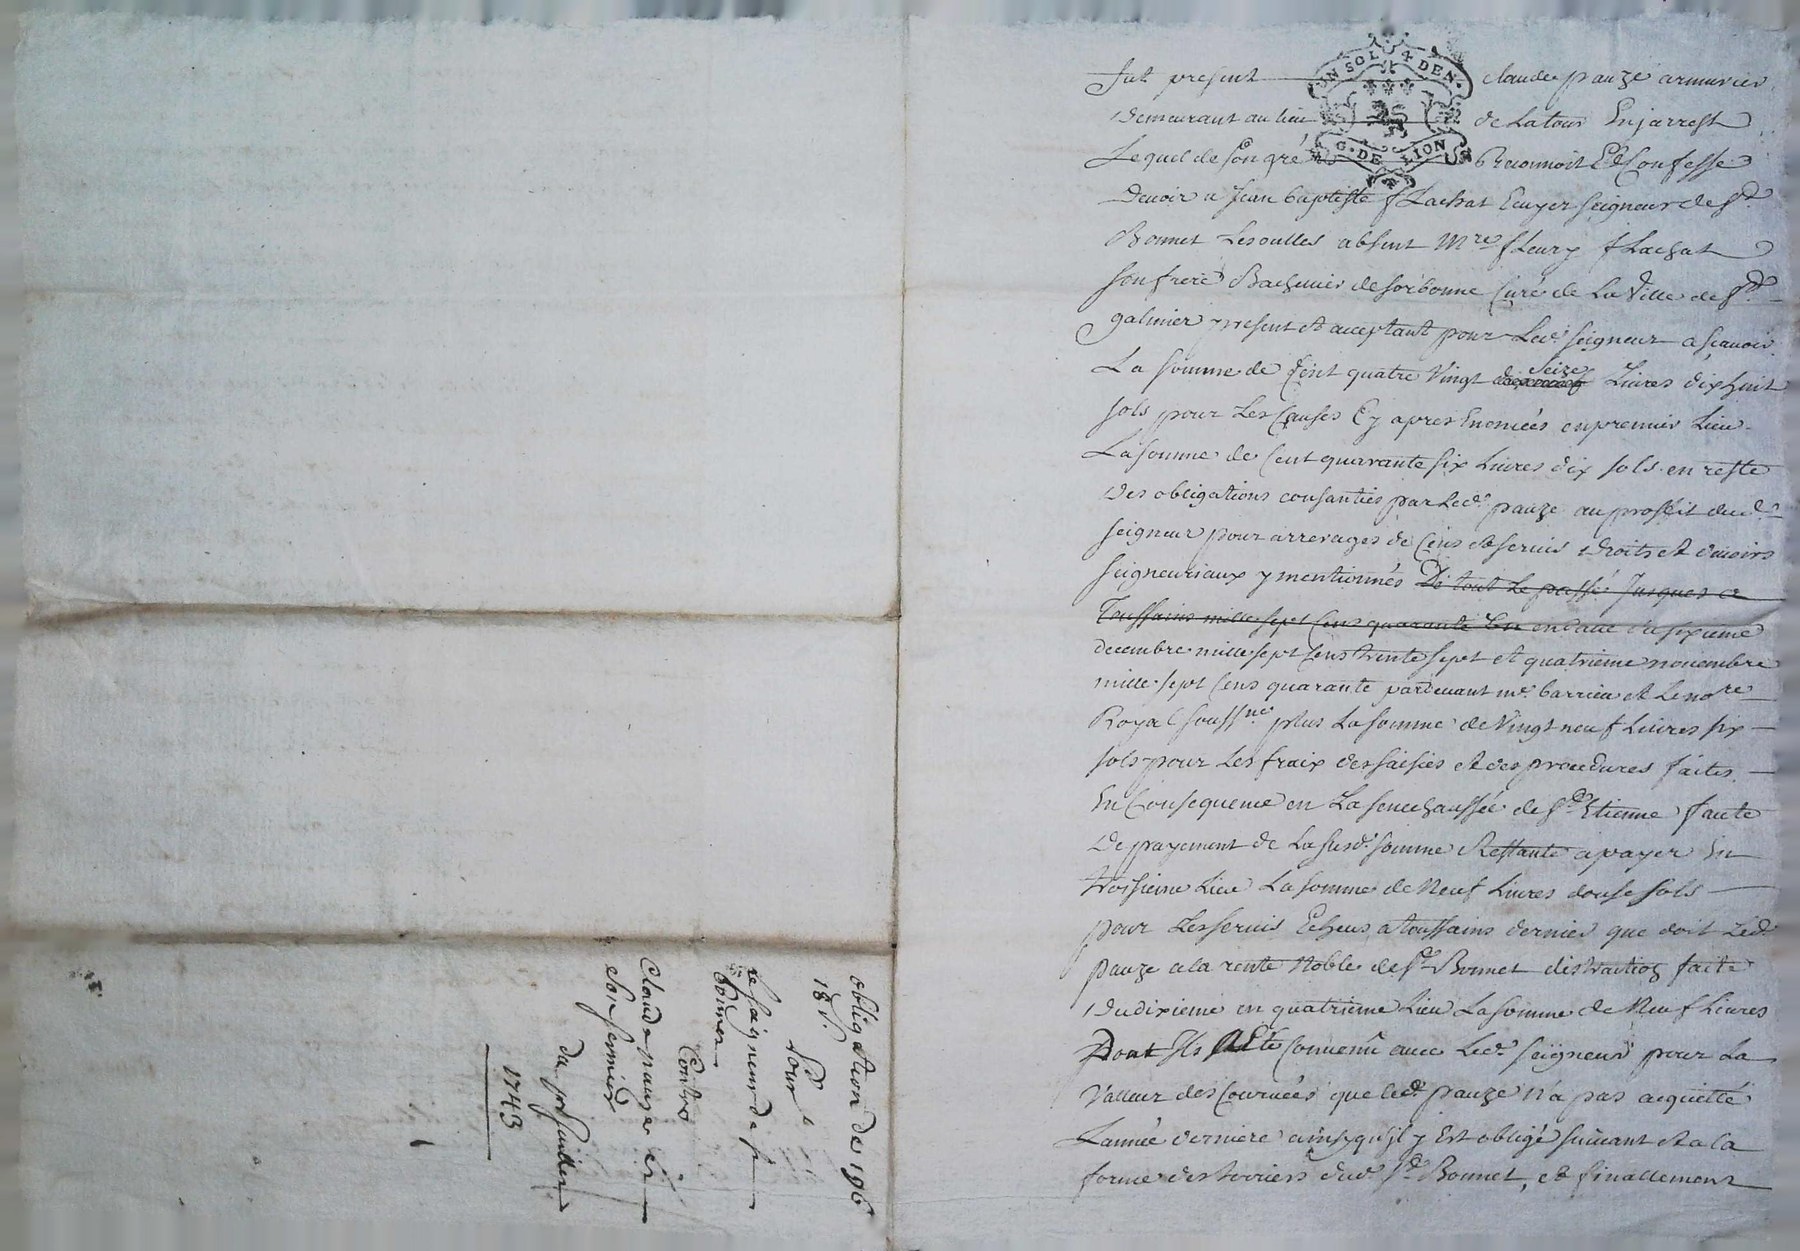 UN SOL 4 DEN.
G. DE LION
fut present claude pauze armurier
Demeurant au lieu de Latour Enjarrest
Lequel de son gré Reconnoit Et Confesse
Devoir a Jean baptiste flachat Ecuyer seigneur de st
Bonnet Lesoulles absent Mre fleury flachat
son frere Bachelier de sorbonne Curé de La Ville de st
galmier present et acceptant pour Led. seigneur a scavoir
La somme de Cent quatre Vingt seize Livres dixhuit
sols pour Les Causes Cy apres Enomées en premier Lieu
La somme de Cent quarante six Livres dix sols en reste
des obligations consanties par Led. pauze au proffit dud.
seigneur pour arrerages de Cens et servis droits et devoirs
seigneuriaux y mentionnés De tout Le passé Jusques a
Toussains mille sept Cens quarante Un en datte du sixieme
decembre mille sept Cens trente sept et quatrieme novembre
mille sept Cens quarante pardevant me barrieu et Le nore
Royal soussné plus La somme de Vingt neuf Livres six
sols pour Les fraix des saisies et des procedures faites
En Consequence en La senechaussée de st Etienne faute
de payement de La susd. somme Restante a payer En
troisieme Lieu La somme de Neuf Livres douse sols
pour Les servis Echeus a toussains dernier que doit Led.
pauze a la rente Noble de st Bonnet distraction faite
du dixieme en quatrieme Lieu La somme de Neuf Livres
Dont Ils a Eté Convenu avec Led. seigneur pour La
Valleur des Corvées que led. pauze n'a pas acquitté
L'année derniere ainsy qu'il y Est obligé suivant et a la
forme des terriers dud. st Bonnet, et finallement
obligation de 196
18 s.
pour
le seigneur de st
bonnet
Contre
Claude pauze et
son fermier
du juillet
1743